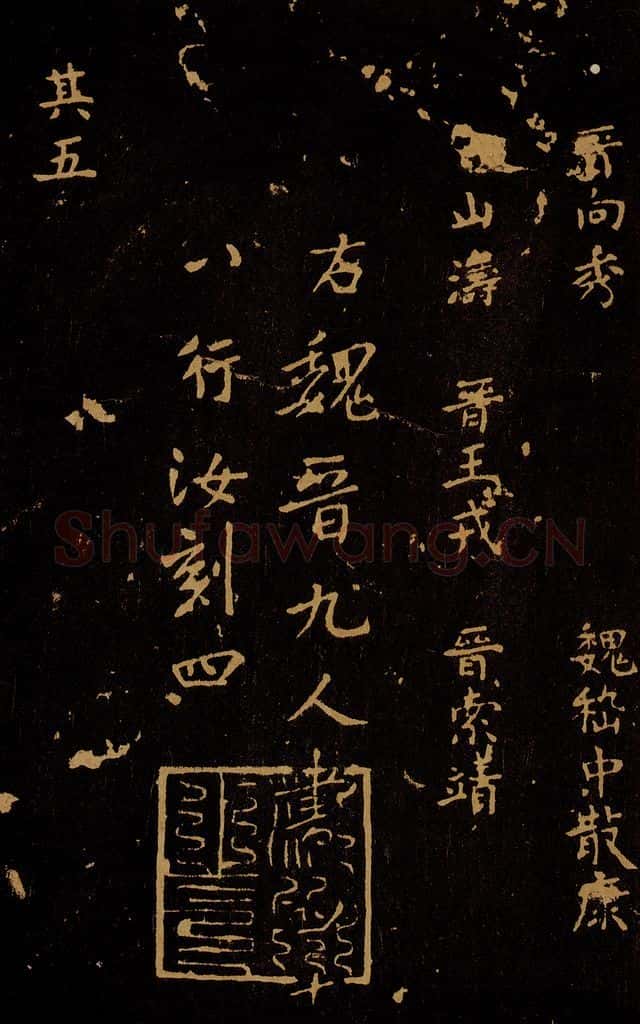 晋向秀 魏嵇中散康
山濤 晋王戎 晋索靖
右魏晋九人
十八行汝刻四
其五
Shufawang.CN